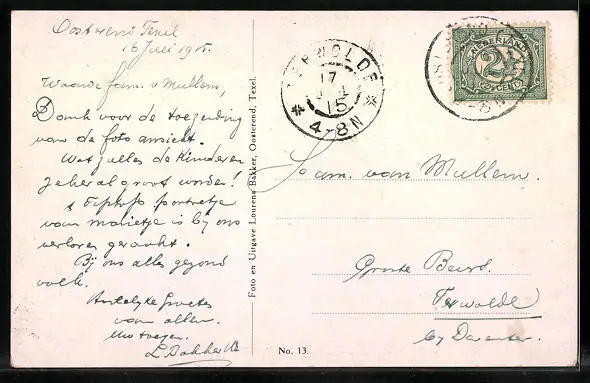 Oosterend Texel
16 Juli 1915.
Waarde fam. v Mullem,
Dank voor de toezending
van de foto ansicht.
Wat zullen de kinderen
geheel groot worden!
t Fiptop portretje
van Marietje is bij ons
verloren geraakt.
Bij ons alles gezond
volk.
Hartelijke Groetes
van allen.
L Bakker
Foto en Uitgave Lourens Bakker, Oosterend, Texel.
No. 13.
TERWOLDE
17
15
4-8N
NEDERLAND
2½
CENT
8N
Fam. van Mullem.
Groote Buurt.
Terwolde
by Deventer.